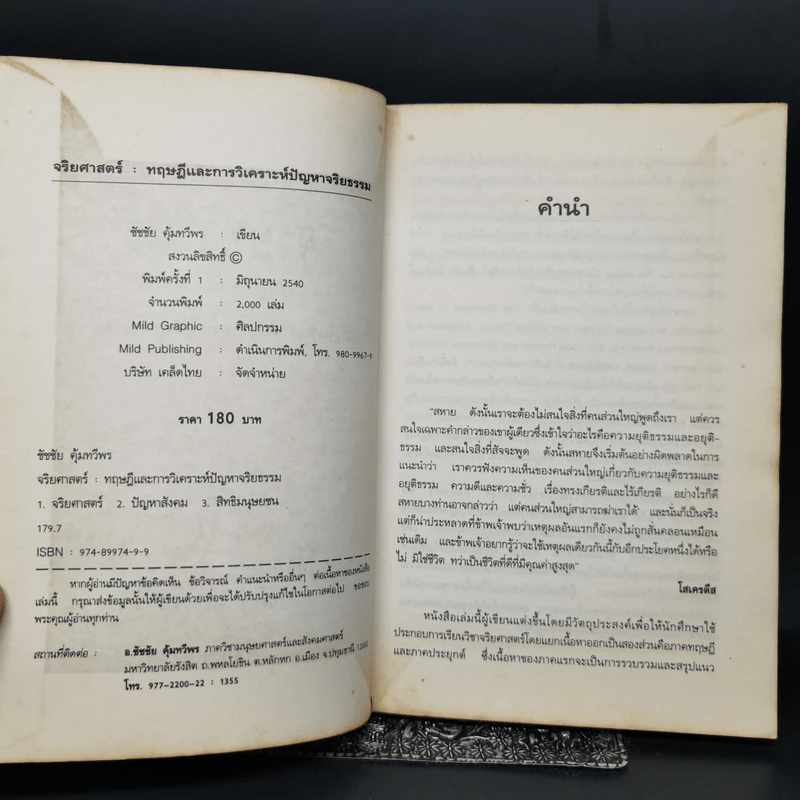 จริยศาสตร์ : ทฤษฎีและการวิเคราะห์ปัญหาจริยธรรม
ชัชชัย คุ้มทวีพร : เขียน
สงวนลิขสิทธิ์ ©
พิมพ์ครั้งที่ 1 : มิถุนายน 2540
จำนวนพิมพ์ : 2,000 เล่ม
Mild Graphic : ศิลปกรรม
Mild Publishing : ดำเนินการพิมพ์, โทร. 980-9967-9
บริษัท เคล็ดไทย : จัดจำหน่าย
ราคา 180 บาท
ชัชชัย คุ้มทวีพร
จริยศาสตร์ : ทฤษฎีและการวิเคราะห์ปัญหาจริยธรรม
1. จริยศาสตร์ 2. ปัญหาสังคม 3. สิทธิมนุษยชน
179.7
ISBN : 974-89974-9-9
หากผู้อ่านมีปัญหาข้อคิดเห็น ข้อวิจารณ์ คำแนะนำหรืออื่นๆ ต่อเนื้อหาของหนังสือ
เล่มนี้ กรุณาส่งข้อมูลนั้นให้ผู้เขียนด้วยเพื่อจะได้ปรับปรุงแก้ไขในโอกาสต่อไป ขอขอบ
พระคุณผู้อ่านทุกท่าน
สถานที่ติดต่อ : อ.ชัชชัย คุ้มทวีพร ภาควิชามนุษยศาสตร์และสังคมศาสตร์
มหาวิทยาลัยรังสิต ถ.พหลโยธิน ต.หลักหก อ.เมือง จ.ปทุมธานี 12000
โทร. 977-2200-22 : 1355
คำนำ
"สหาย ดังนั้นเราจะต้องไม่สนใจสิ่งที่คนส่วนใหญ่พูดถึงเรา แต่ควร
สนใจเฉพาะคำกล่าวของเขาผู้เดียวซึ่งเข้าใจว่าอะไรคือความยุติธรรมและอยุติ-
ธรรม และสนใจสิ่งที่สัจจะพูด ดังนั้นสหายจึงเริ่มต้นอย่างผิดพลาดในการ
แนะนำว่า เราควรฟังความเห็นของคนส่วนใหญ่เกี่ยวกับความยุติธรรมและ
อยุติธรรม ความดีและความชั่ว เรื่องทรงเกียรติและไร้เกียรติ อย่างไรก็ดี
สหายบางท่านอาจกล่าวว่า แต่คนส่วนใหญ่สามารถฆ่าเราได้ และนั่นก็เป็นจริง
แต่ก็น่าประหลาดที่ข้าพเจ้าพบว่าเหตุผลอันแรกก็ยังคงไม่ถูกสั่นคลอนเหมือน
เช่นเดิม และข้าพเจ้าอยากรู้ว่าจะใช้เหตุผลเดียวกันนี้กับอีกประโยคหนึ่งได้หรือ
ไม่ มิใช่ชีวิต ทว่าเป็นชีวิตที่ดีที่มีคุณค่าสูงสุด"
โสเครตีส
หนังสือเล่มนี้ผู้เขียนแต่งขึ้นโดยมีวัตถุประสงค์เพื่อให้นักศึกษาใช้
ประกอบการเรียนวิชาจริยศาสตร์โดยแยกเนื้อหาออกเป็นสองส่วนคือภาคทฤษฎี
และภาคประยุกต์ ซึ่งเนื้อหาของภาคแรกจะเป็นการรวบรวมและสรุปแนว